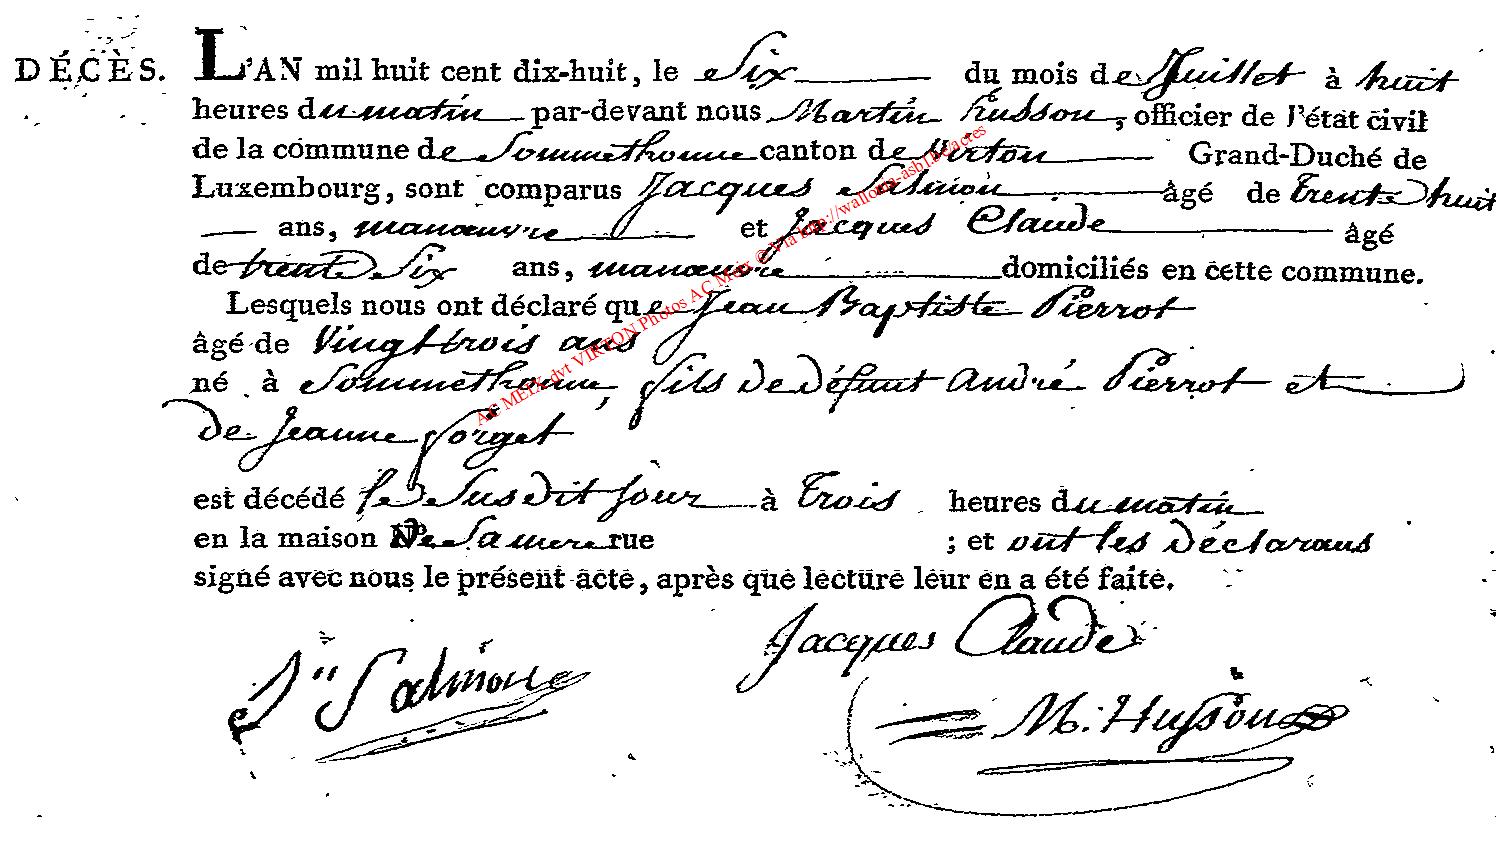 DÉCÈS. L'AN mil huit cent dix-huit, le Six du mois de Juillet à huit
heures du matin par-devant nous Martin husson, officier de l'état civil
de la commune de Sommethonne canton de Virton Grand-Duché de
Luxembourg, sont comparus Jacques Salmon âgé de trente huit
ans, manœuvre et Jacques Claude âgé
de trente Six ans, manœuvre domiciliés en cette commune.
Lesquels nous ont déclaré que Jean Baptiste Pierrot
âgé de Vingt trois ans
né à Sommethonne, fils de défunt André Pierrot et
de Jeanne forget
est décédé le Susdit jour à trois heures du matin
en la maison de Sa mere rue ; et ont les déclarans
signé avec nous le présent acte, après que lecture leur en a été faite.
Jacques Claude
Salmon
M. Husson
AC MEIX-dvt VIRTON Photos AC Meix © Via http://wallonia-asbl.be/actes